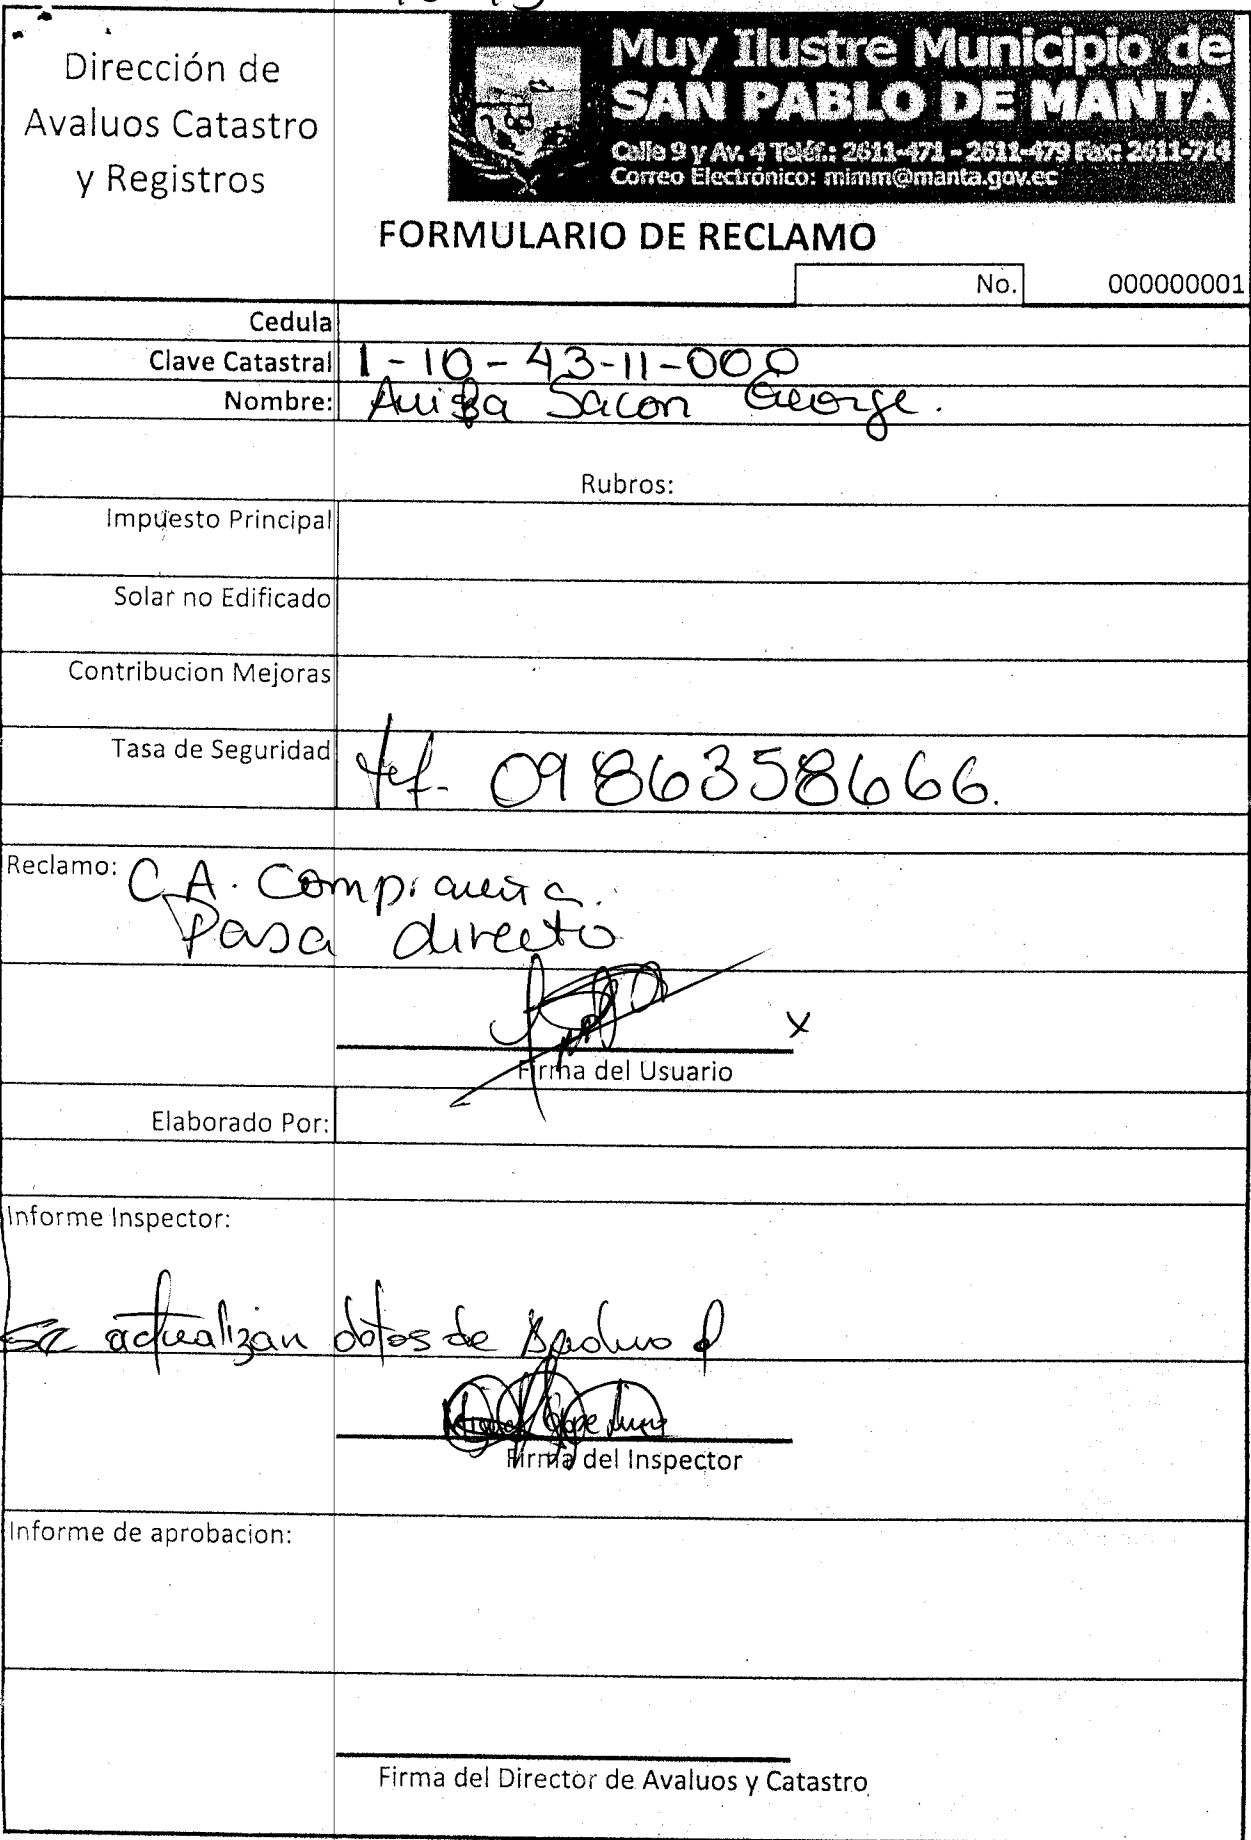 Dirección de
Avaluos Catastro
y Registros
Muy Ilustre Municipio de
SAN PABLO DE MANTA
Calle 9 y Av. 4 Teléf.: 2611-471 - 2611-479 Fax: 2611-714
Correo Electrónico: mimm@manta.gov.ec
FORMULARIO DE RECLAMO
No. 000000001
Cedula
Clave Catastral 1-10-43-11-000
Nombre: Sacon George.
Rubros:
Impuesto Principal
Solar no Edificado
Contribucion Mejoras
Tasa de Seguridad telf. 0986358666.
Reclamo: C.A. Compraventa.
Pasa directo
x
Firma del Usuario
Elaborado Por:
Informe Inspector:
Se actualizan datos de
Firma del Inspector
Informe de aprobacion:
Firma del Director de Avaluos y Catastro